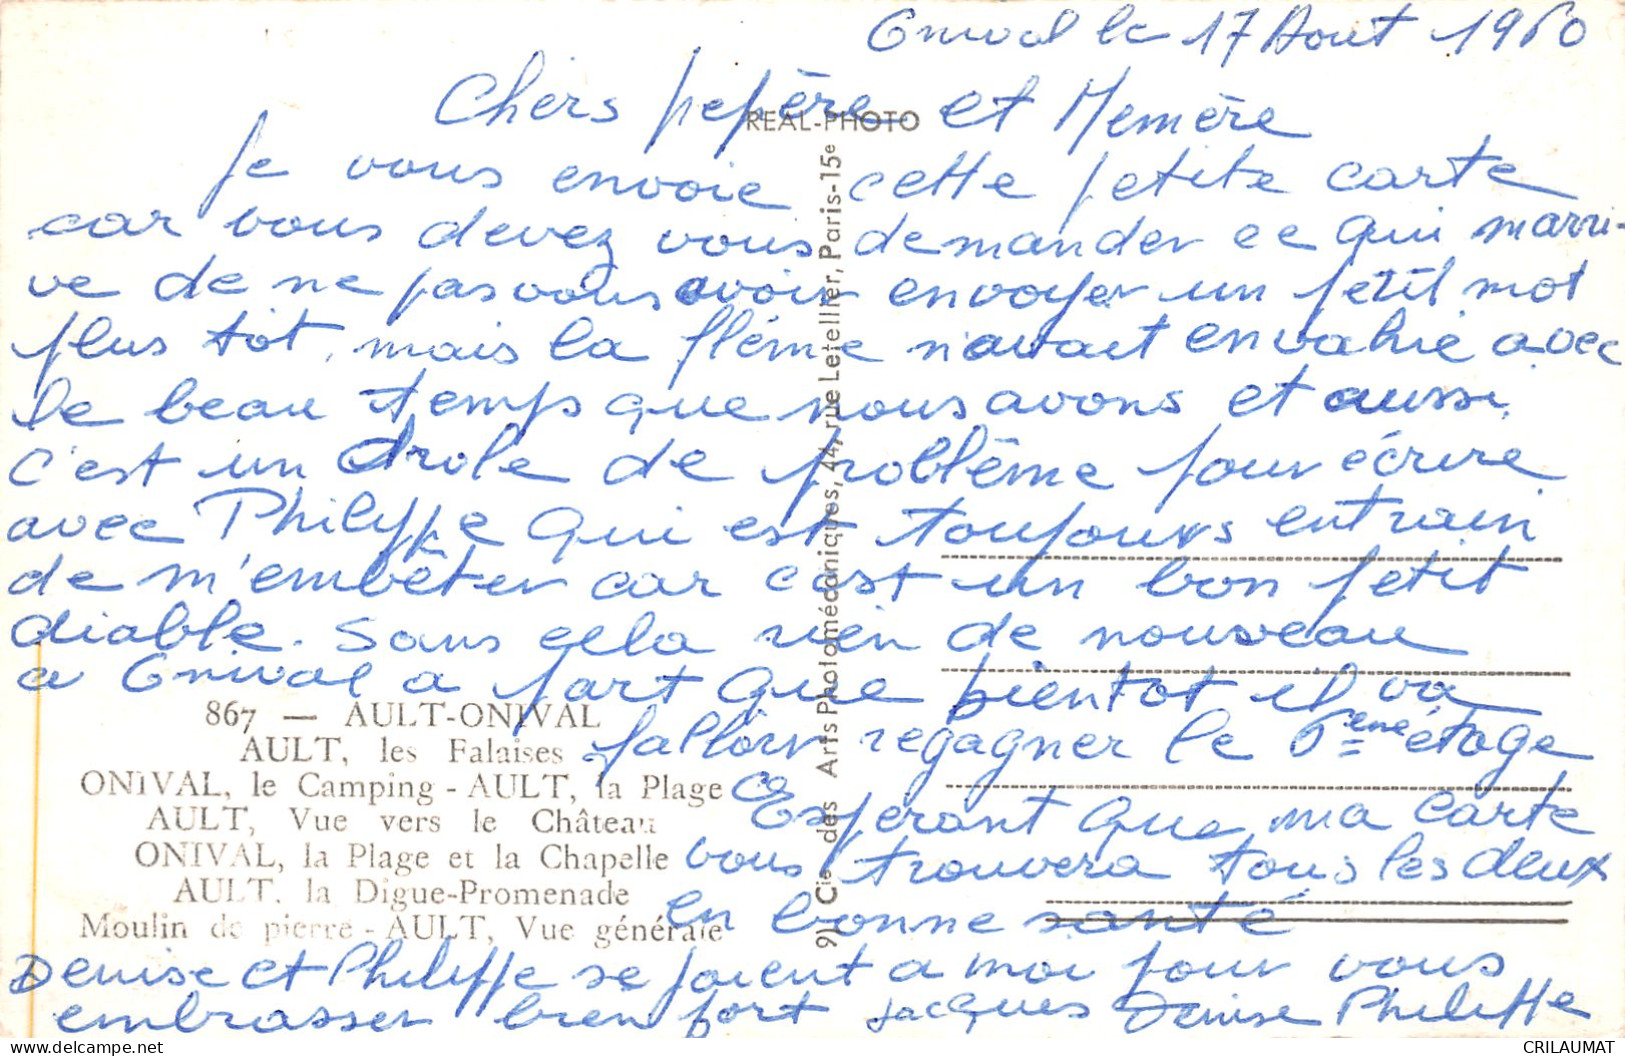 Onival le 17 Aout 1960
Chers pepère et Memère
REAL-PHOTO
Je vous envoie cette petite carte
car vous devez vous demander ce qui marri-
ve de ne pas vous avoir envoyer un petit mot
plus tôt, mais la flémie n'avait envahie avec
le beau temps que nous avons et aussi,
c'est un drole de problême pour écrire
avec Philippe qui est toujours entrain
de m'embêter car c'est un bon petit
diable. Sans cela rien de nouveau
a Onival a part que bientot il va
falloir regagner le 6ème étage
Esperant que ma carte
vous trouvera tous les deux
en bonne santé
Denise et Philippe se joient a moi pour vous
embrasser bien fort Jacques Denise Philippe
867 — AULT-ONIVAL
AULT, les Falaises
ONIVAL, le Camping - AULT, la Plage
AULT, Vue vers le Château
ONIVAL, la Plage et la Chapelle
AULT, la Digue-Promenade
Moulin de pierre - AULT, Vue générale
9) Cie des Arts Photomécaniques, 44, rue Letellier, Paris-15e
delcampe.net
CRILAUMAT